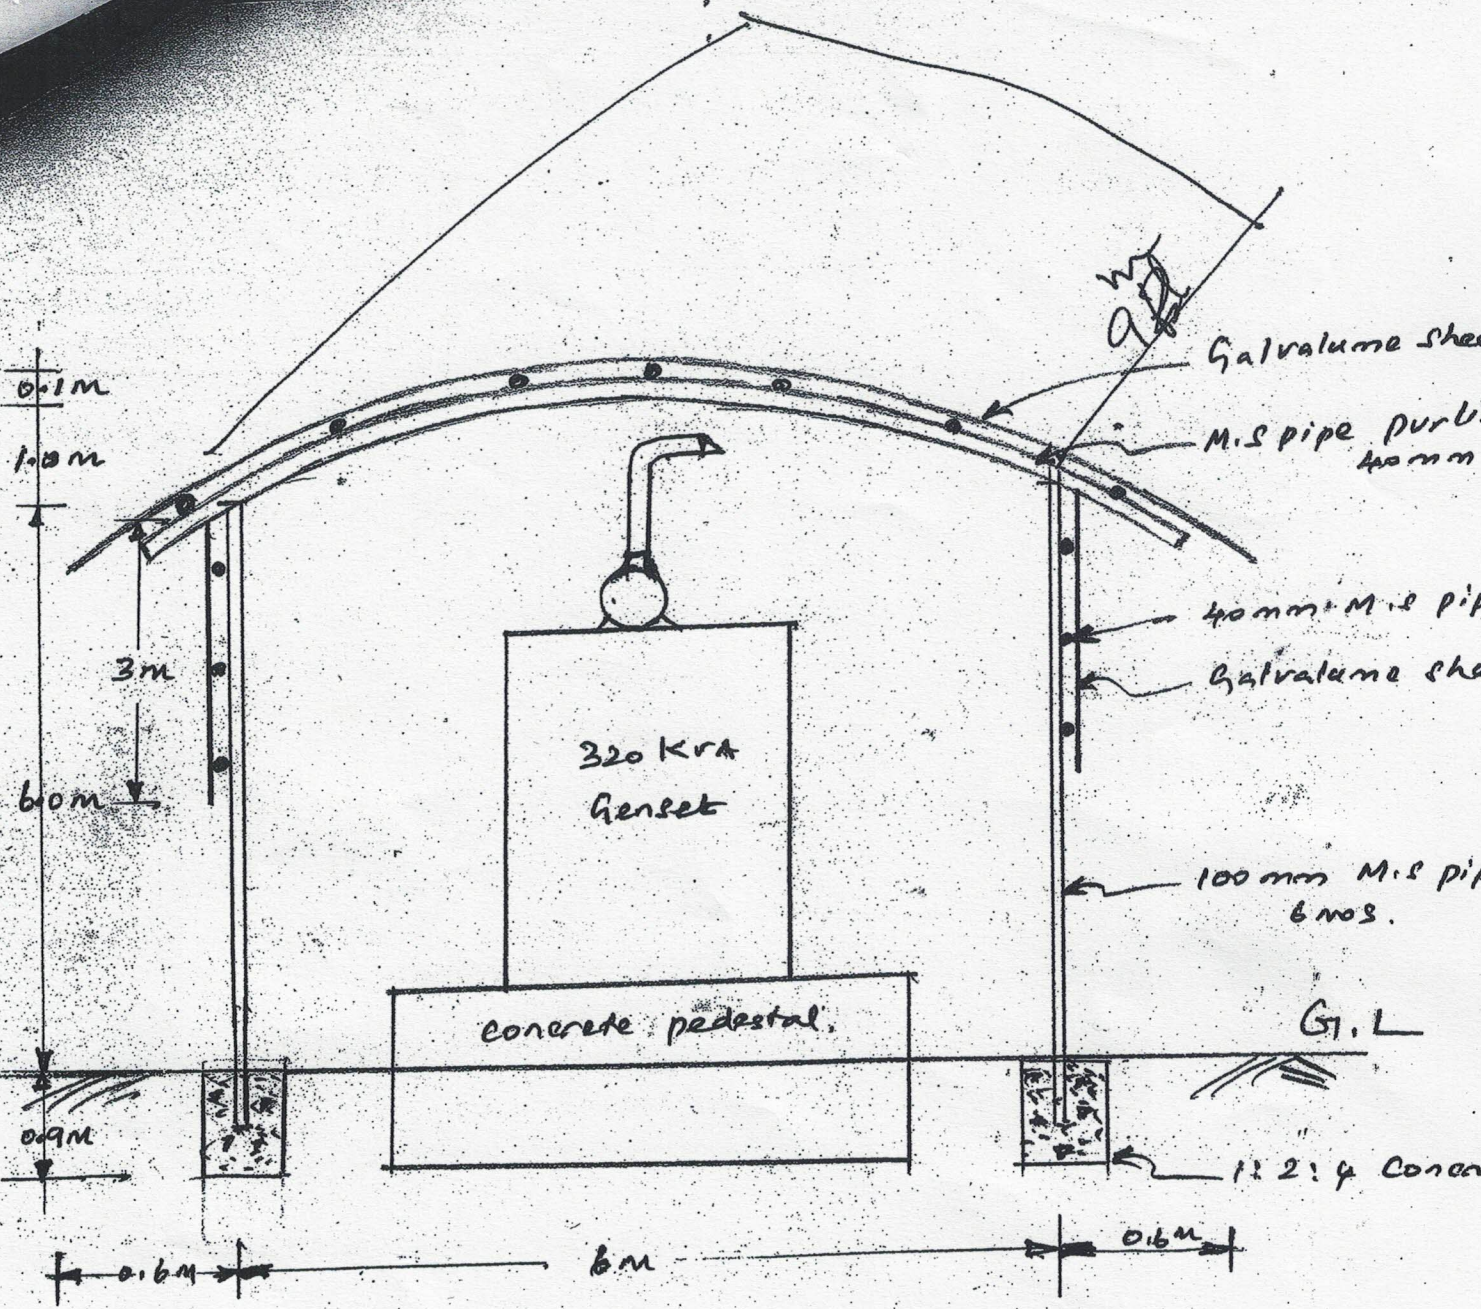 9
Galvalume shee
M.S pipe purli
40mm
0.1M
1.0M
40mm M.S pip
3m
Galvalume she
320 KVA
Genset
6.0m
100mm M.S pip
6 nos.
concrete pedestal.
G.L
0.9M
1:2:4 Concr
0.6M
6M
0.6M